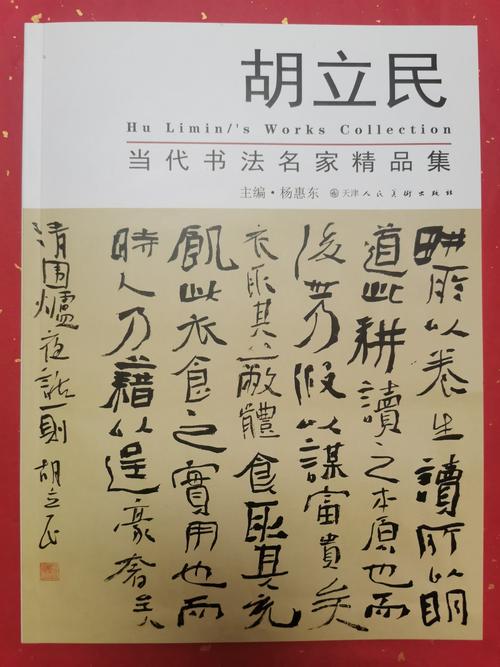 胡立民
Hu Limin/'s Works Collection
当代书法名家精品集
主编·杨惠东 天津人民美术出版社
耕所以养生讀所以明
道此耕讀之本原也而
後世乃假以謀富貴矣
衣取其蔽體食取其充
飢此衣食之實用也而
時人乃藉以逞豪奢矣
清围爐夜話一則 胡立民